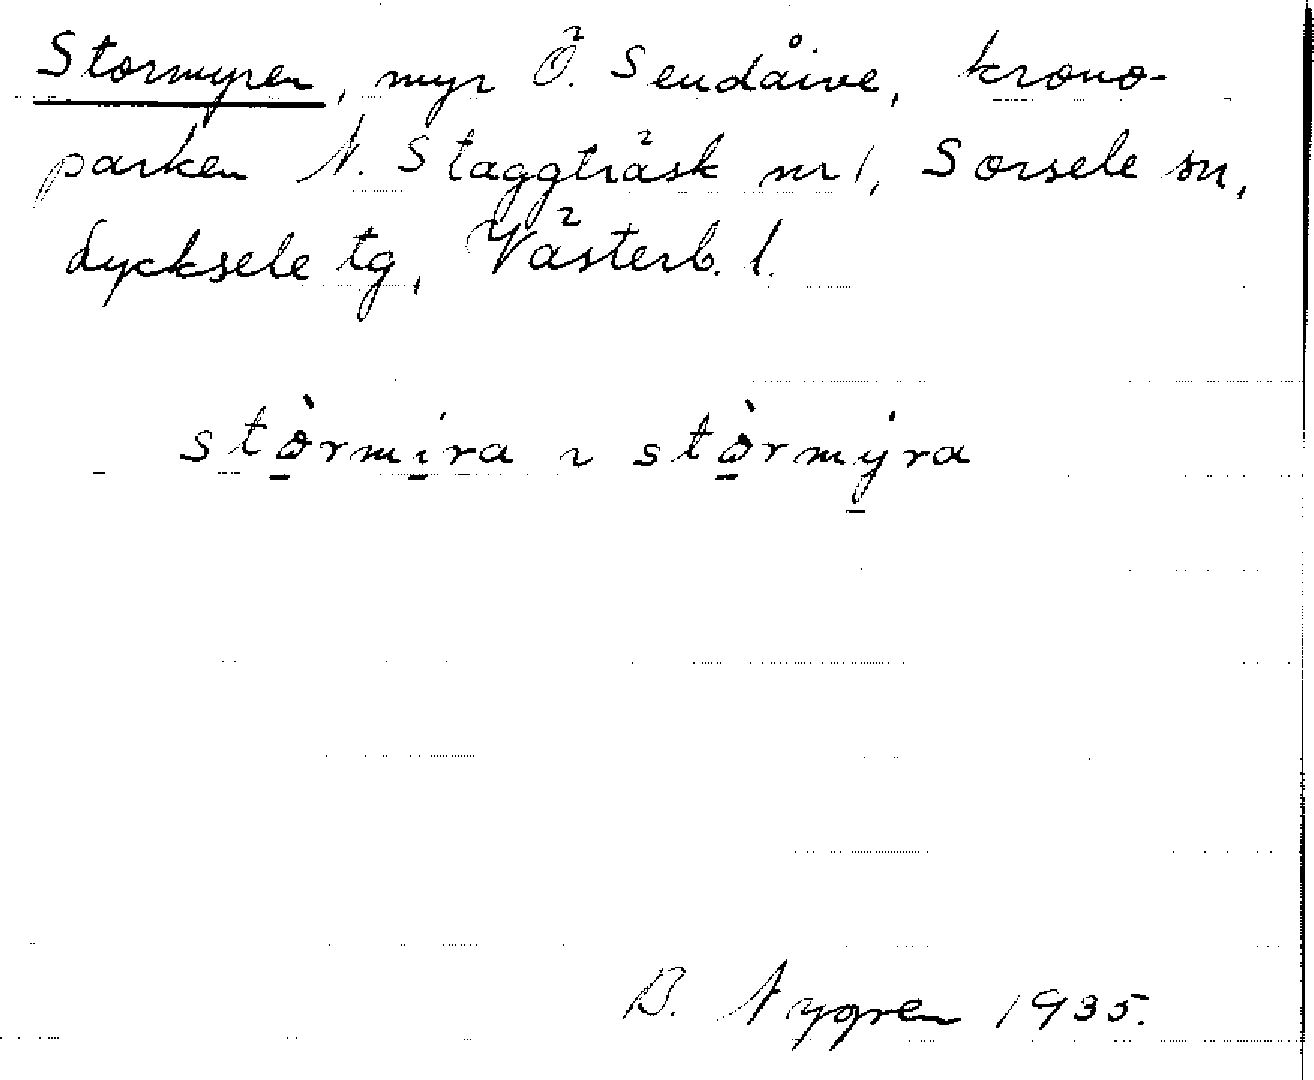 Stormyren, myr Ö. Sendåive, krono-
parken N. Staggträsk nr 1, Sorsele sn,
Lycksele tg, Västerb. l.
stòrmíra ~ stòrmýra
B. Nygren 1935.